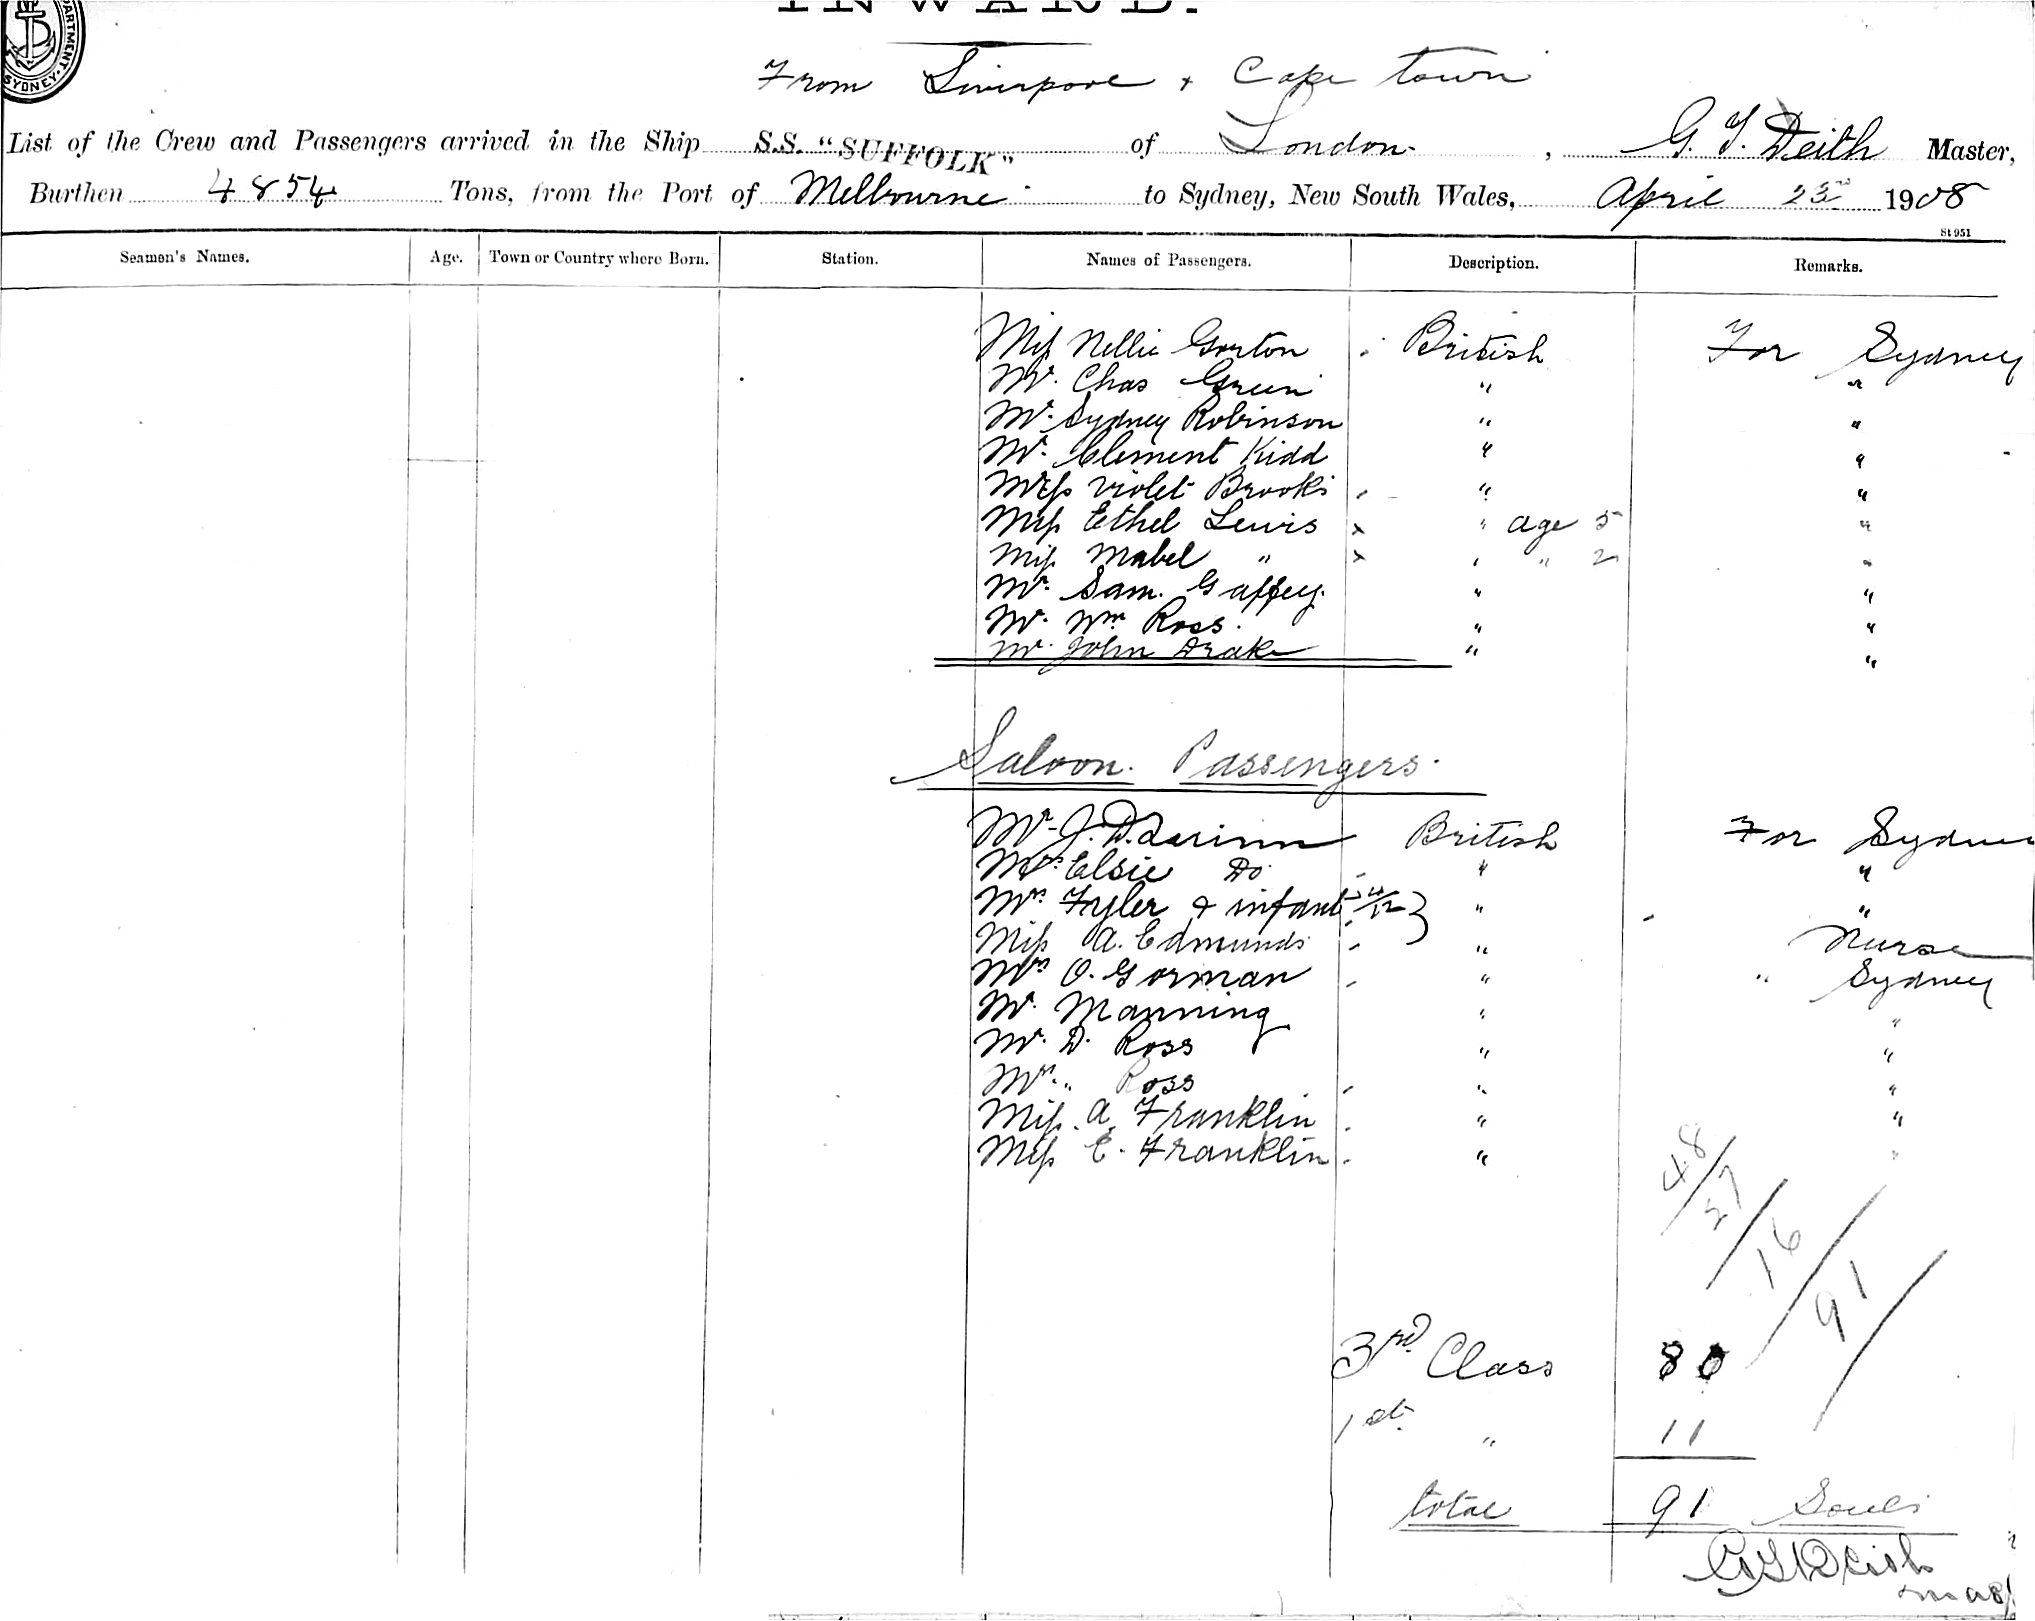 DEPARTMENT. SYDNEY.
INWARD.
From Liverpool & Cape town
List of the Crew and Passengers arrived in the Ship S.S. "SUFFOLK" of London. , G. F. Deith Master,
Burthen 4854 Tons, from the Port of Melbourne to Sydney, New South Wales, April 23rd 1908
St 951
Seamen's Names. Age. Town or Country where Born. Station. Names of Passengers. Description. Remarks.
Miss Nellie Gorton British For Sydney
Mr. Chas Green " "
Mr. Sydney Robinson " "
Mr. Clement Kidd " "
Miss Violet Brooks " "
Miss Ethel Lewis x " age 5 "
Miss Mabel " x " " 2 "
Mr. Sam. Gaffey. " "
Mr. Wm Ross. " "
Mr. John Drake " "
Saloon. Passengers.
Mr. J. D. British For Sydney
Mrs. Elsie Do " "
Mrs. Fyler & infant } " "
Miss A. Edmunds " Nurse
Mrs O. Gorman " " Sydney
Mr. Manning " "
Mr. D. Ross " "
Mrs. " Ross " "
Miss. A. Franklin " "
Miss E. Franklin " "
48/
27/
16/
91/
3rd Class 80
1st " 11
total 91 Souls
G F Deith